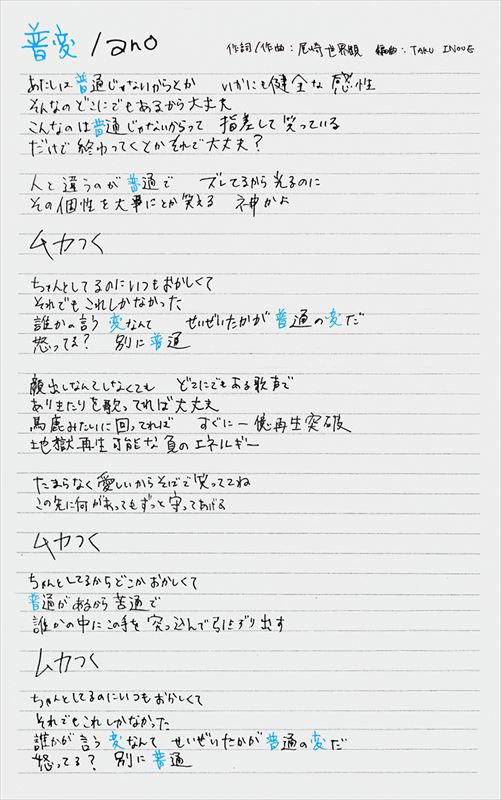 普変 / ano 作詞/作曲:尾崎世界観 編曲:TAKU INOUE
あたしは普通じゃないからとか いかにも健全な感性
そんなのどこにでもあるから大丈夫
こんなのは普通じゃないからって 指差して笑っている
だけで終わってくとかそれで大丈夫?
人と違うのが普通で ズレてるから光るのに
その個性を大事にとか笑える 神かよ
ムカつく
ちゃんとしてるのにいつもおかしくて
それでもこれしかなかった
誰かの言う変なんて せいぜいたかが普通の変だ
怒ってる? 別に普通
顔出しなんてしなくても どこにでもある歌声で
ありきたりを歌ってれば大丈夫
馬鹿みたいに回ってれば すぐに一億再生突破
地獄再生可能な負のエネルギー
たまらなく愛しいからそばで笑っててね
この先に何があってもずっと守ってあげる
ムカつく
ちゃんとしてるからどこかおかしくて
普通があるから苦通で
誰かの中にこの手を突っ込んで引きずり出す
ムカつく
ちゃんとしてるのにいつもおかしくて
それでもこれしかなかった
誰かが言う変なんて せいぜいたかが普通の変だ
怒ってる? 別に普通